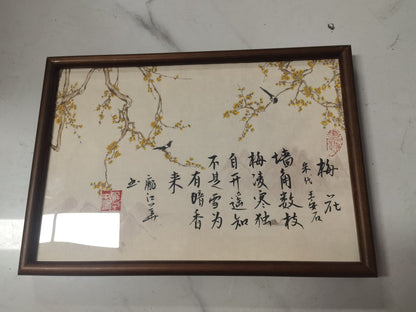 梅花
宋代 王安石
墙角数枝
梅凌寒独
自开遥知
不是雪为
有暗香
来
江華
书